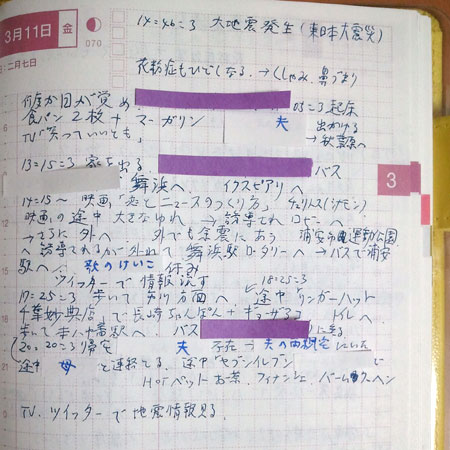 3月11日 金
070
旧・二月七日
14=46=3 大地震発生(東日本大震災)
花粉症もひどくなる。→くしゃみ、鼻づまり
何度か目が覚め
03=3起床
食パン2枚+マーガリン
夫 出かける
TV「笑っていいとも」
→秋葉原へ
13=15=3 家を出る
バス
舞浜へ イクスピアリへ
3
14=15~ 映画「恋とニュースのつくり方」
映画の途中 大きなゆれ → 誘導されロビーへ
→さらに外へ 外でも余震にあう 浦安市運動公園
へ誘導されるが外れて 舞浜駅ロータリーへ →バスで浦安
駅へ
休み
ツイッターで情報流す
18=25=3
17=25=3 歩いて 方面へ 途中リンガーハット
千葉妙典店で長崎ちゃんぽん+ギョーザ3コ トイレへ
歩いて 駅へ バス
に乗る
20=20=3帰宅 夫 不在→夫の
途中 母 と連絡とる。途中セブンイレブン
HOTペットお茶、フィナンシェ、バームクーヘン
TV、ツイッターで地震情報見る。